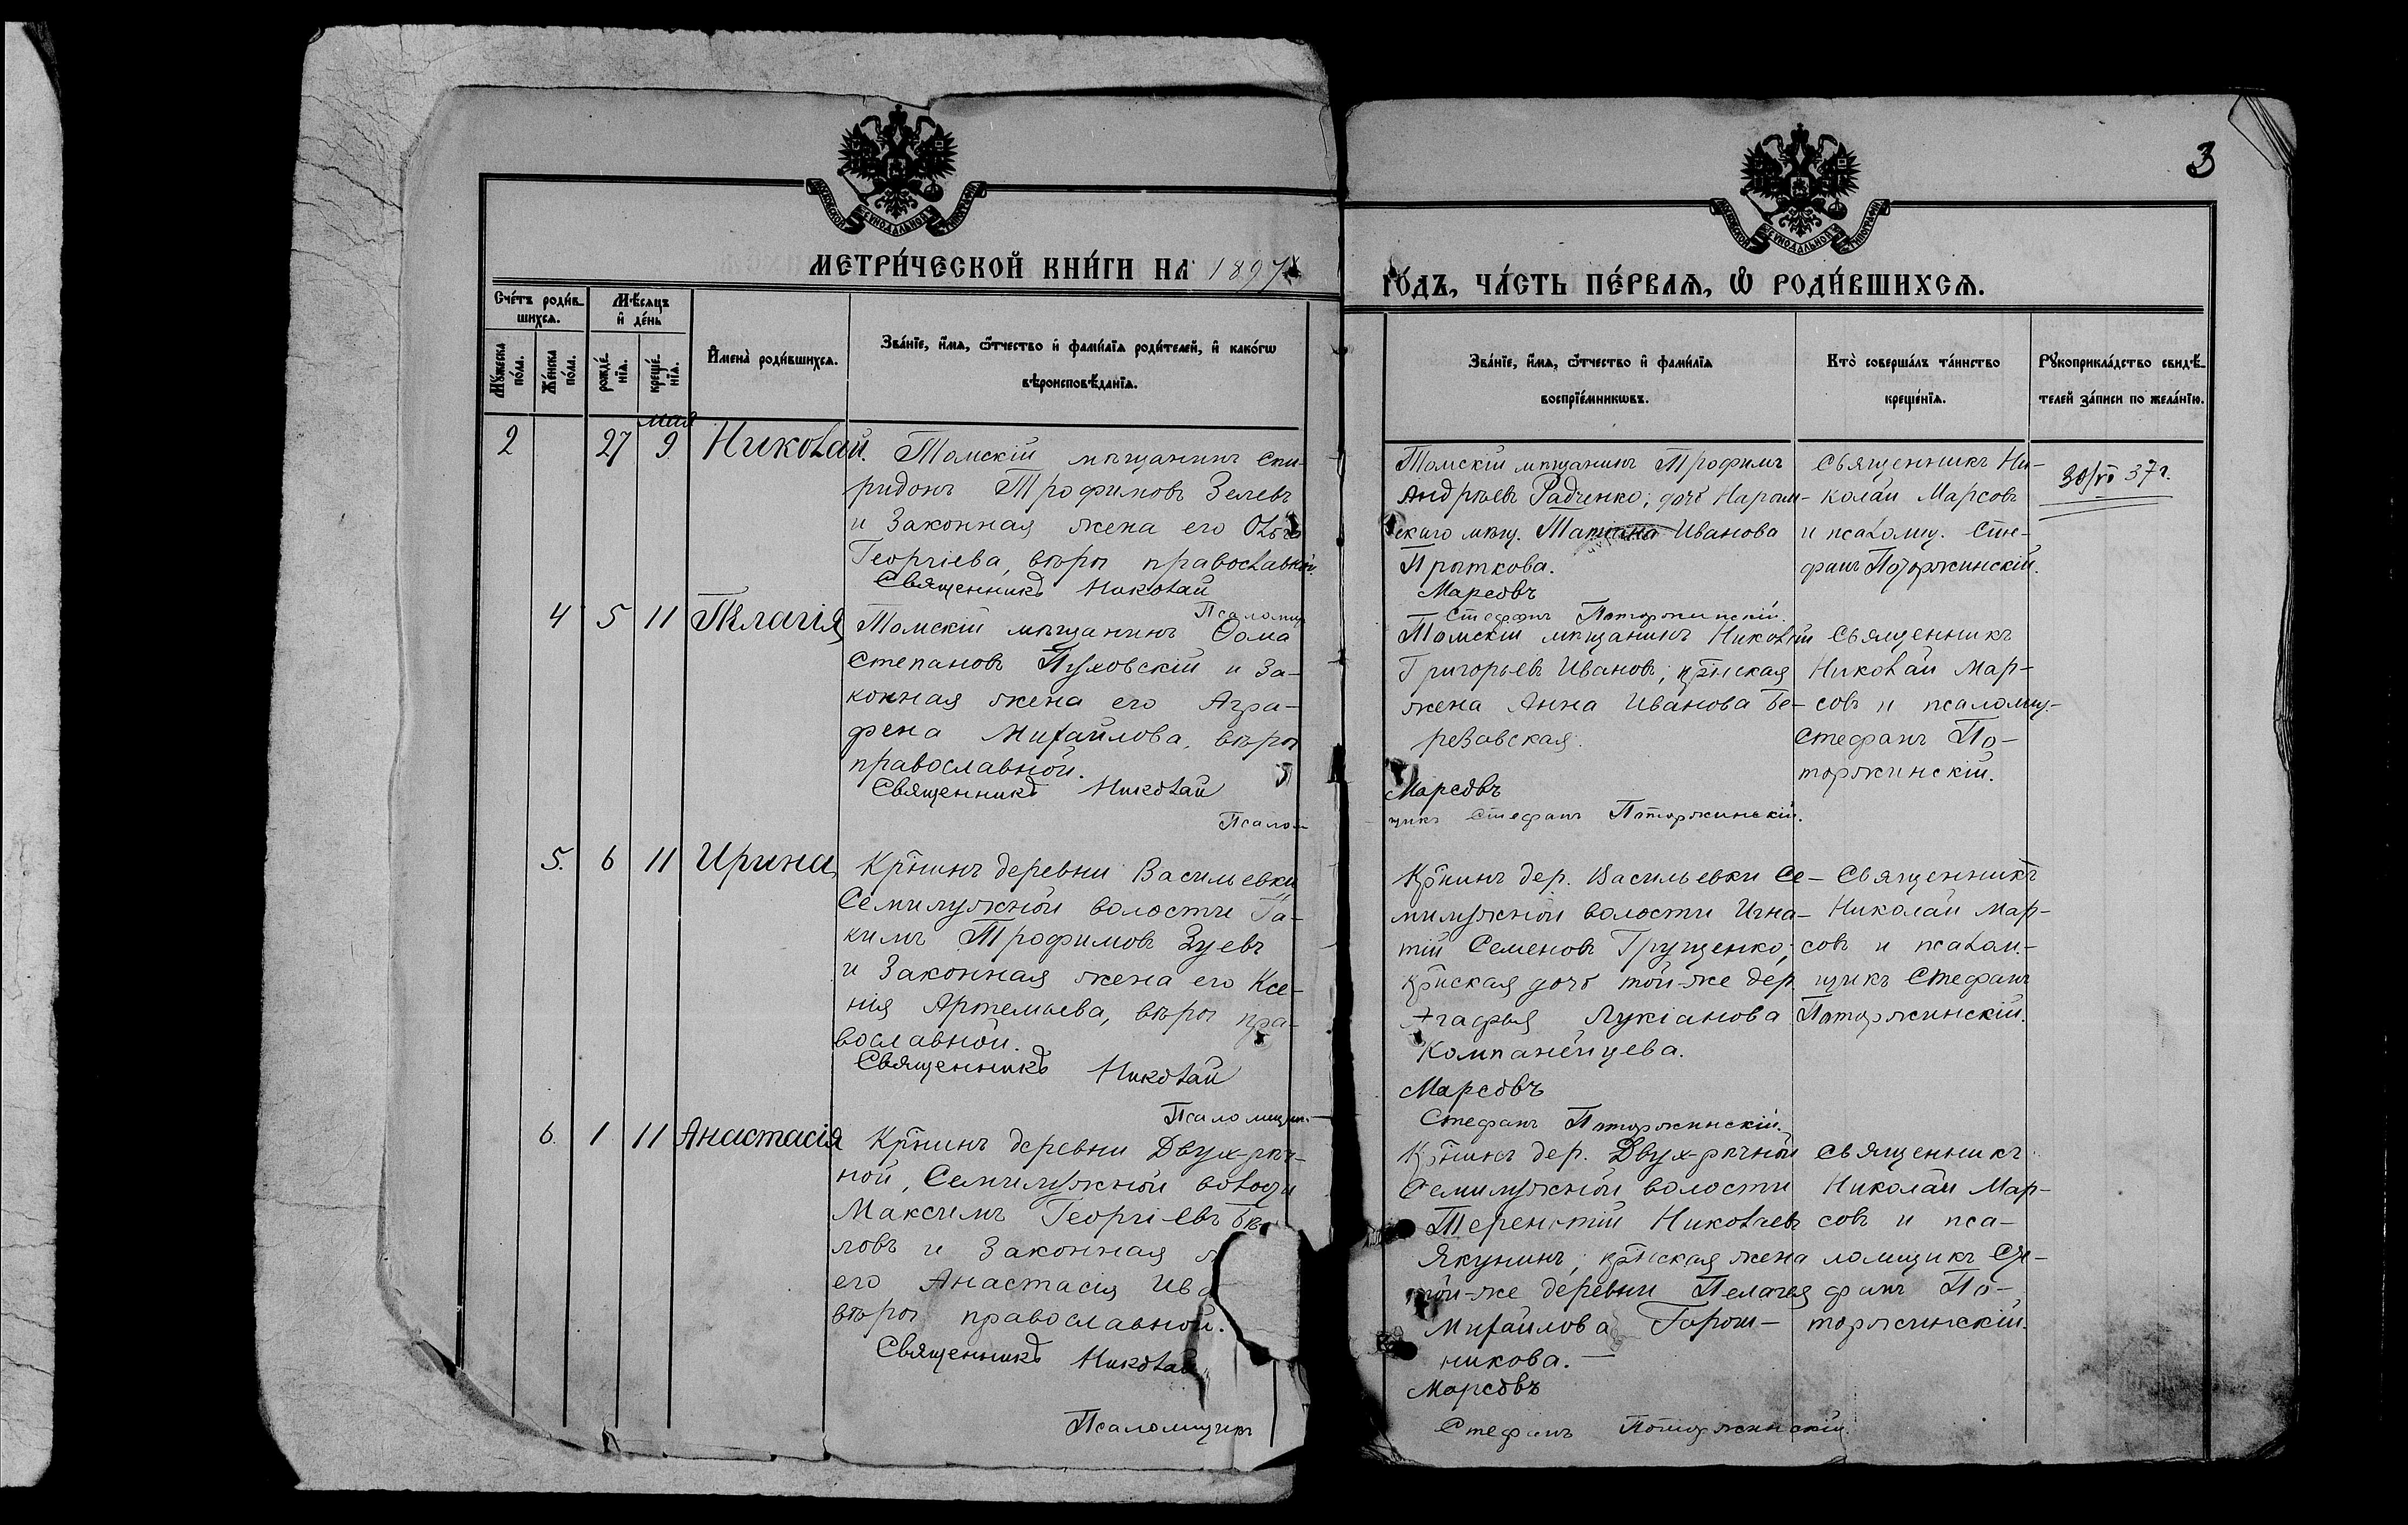 3
МЕТРИ́ЧЕСКОЙ КНИ́ГИ НА 1897
ГО́ДЪ, ЧА́СТЬ ПЕ́РВАЯ, Ѡ РОДИ́ВШИХСЯ.
Счетъ родив-
шихся.
Мѣсяцъ
и день
Мужеска пола.
Женска пола.
рожде-
нія.
креще-
нія.
Имена родившихся.
Званіе, имя, отчество и фамилія родителей, и какогѡ
вѣроисповѣданія.
Званіе, имя, отчество и фамилія
воспріемникѡвъ.
Кто совершалъ таинство
крещенія.
Рукоприкладство свидѣ-
телей записи по желанію.
мая
2 27 9 Николай.
Томскій мѣщанинъ Спи-
ридонъ Трофимовъ Зелевъ
и законная жена его
Георгіева, вѣры православной.
Священникъ Николай
Псаломщ
Томскій мѣщанинъ Трофимъ
Андреевъ Радченко; дочь Нарым-
скаго мѣщ. Татіана Иванова
Прыткова.
Марсовъ
Стефанъ Поторжинскій.
Священникъ Ни-
колай Марсовъ
и псаломщ. Сте-
фанъ Поторжинскій.
30/VI 37 г.
4 5 11 Пелагія
Томскій мѣщанинъ Ѳома
Степановъ Пуховскій и за-
конная жена его Агра-
фена Михайлова, вѣры
православной.
Священникъ Николай
Псалом-
Томскій мѣщанинъ Николай
Григорьевъ Ивановъ; кр-нская
жена Анна Иванова Бе-
резовская.
Марсовъ
щикъ Стефанъ Поторжинскій.
Священникъ
Николай Мар-
совъ и псаломщ.-
Стефанъ По-
торжинскій.
5. 6 11 Ирина
Кр-нинъ деревни Васильевки
Семилужной волости Іа-
кимъ Трофимовъ Зуевъ
и законная жена его Ксе-
нія Артемьева, вѣры пра-
вославной.
Священникъ Николай
Псаломщик-
Кр-нинъ дер. Васильевки Се-
милужной волости Игна-
тій Семеновъ Грущенко;
кр-нская дочь той-же дер
Агафья Лукіанова
Компанейцева.
Марсовъ
Стефанъ Поторжинскій.
Священникъ
Николай Мар-
совъ и псалом-
щикъ Стефанъ
Поторжинскій.
6. 1 11 Анастасія
Кр-нинъ деревни Двух-рѣч-
ной, Семилужной волости
Максимъ Георгіевъ
ловъ и законная
его Анастасія Ива
вѣры православной.
Священникъ Николай
Псаломщикъ
Кр-нинъ дер. Двух-рѣчной
Семилужной волости
Терентій Николаевъ
Якунинъ; кр-нская жена
той-же деревни Пелагея
Михайлова Горош-
никова.
Марсовъ
Стефанъ Поторжинскій.
Священникъ
Николай Мар-
совъ и пса-
ломщикъ Сте-
фанъ По-
торжинскій.